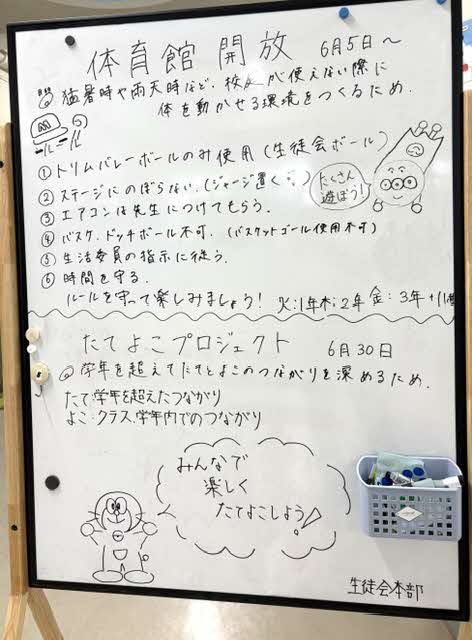 体育館 開放 6月5日〜
◎猛暑時や雨天時など、校庭が使えない際に
体を動かせる環境をつくるため.
ルール
① トリムバレーボールのみ使用 (生徒会ボール)
② ステージにのぼらない. (ジャージ置く
③ エアコンは先生につけてもらう.
④ バスケ、ドッチボール不可. (バスケットゴール使用不可)
⑤ 生活委員の指示に従う.
⑥ 時間を守る.
たくさん
遊ぼう!
ルールを守って楽しみましょう! 火:1年 木:2年 金:3年+
たてよこプロジェクト 6月30日
◎学年を超えてたてとよこのつながりを深めるため.
たて:学年を超えたつながり
よこ:クラス、学年内でのつながり
みんなで
楽しく
たてよこしよう!
生徒会本部